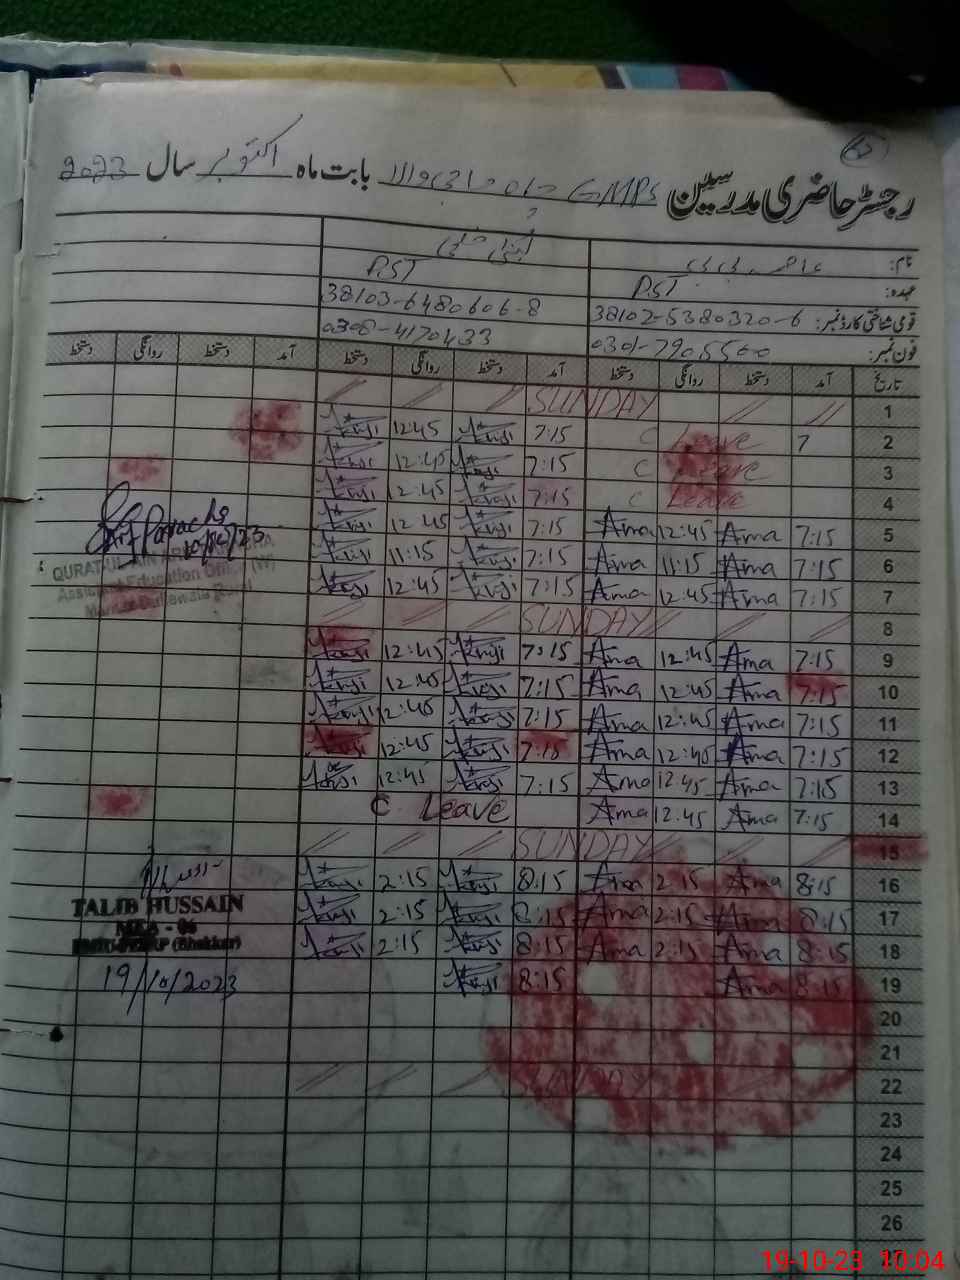 رجسٹر حاضری مدرسین GMPS چاہ حاجی والا بابت ماہ اکتوبر سال 2023
نام:
عہدہ: PST PST
قومی شناختی کارڈ نمبر: 38102-5380320-6 38103-6480606-8
فون نمبر: 0301-7905500 0308-4170433
تاریخ آمد دستخط روانگی دستخط آمد دستخط روانگی دستخط آمد دستخط روانگی دستخط
1 // // SUNDAY // // //
2 7 C Leave 7:15 12:45
3 C Leave 7:15 12:45
4 C Leave 7:15 12:45
5 7:15 Ama 12:45 Ama 7:15 12:45
6 7:15 Ama 11:15 Ama 7:15 11:15
7 7:15 Ama 12:45 Ama 7:15 12:45
8 // // SUNDAY // // //
9 7:15 Ama 12:45 Ama 7:15 12:45
10 7:15 Ama 12:45 Ama 7:15 12:45
11 7:15 Ama 12:45 Ama 7:15 12:45
12 7:15 Ama 12:45 Ama 7:15 12:45
13 7:15 Ama 12:45 Ama 7:15 12:45
14 7:15 Ama 12:45 Ama C Leave
15 // // SUNDAY // // //
16 8:15 Ama 2:15 Ama 8:15 2:15
17 8:15 Ama 2:15 Ama 8:15 2:15
18 8:15 Ama 2:15 Ama 8:15 2:15
19 8:15 Ama 8:15
20
21
22 SUNDAY // // //
23
24
25
26
QURAT-UL-AIN
Assistant Education Officer (W)
TALIB HUSSAIN
MEA - 06
(Bhakkar)
19/10/2023
19-10-23 10:04